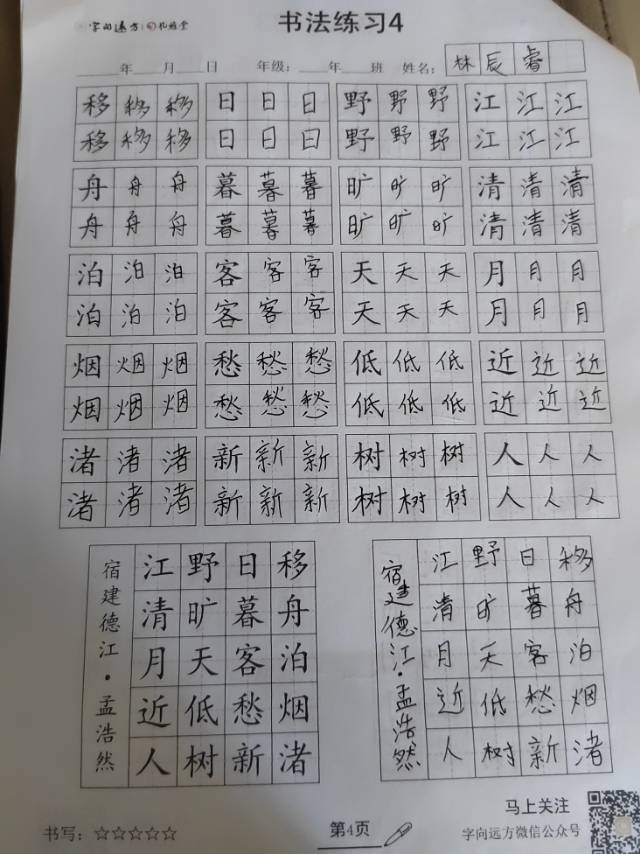 字向远方 书法练习4
年 月 日 年级： 年 班 姓名：林辰睿
移移移 日日日 野野野 江江江
移移移 日日日 野野野 江江江
舟舟舟 暮暮暮 旷旷旷 清清清
舟舟舟 暮暮暮 旷旷旷 清清清
泊泊泊 客客客 天天天 月月月
泊泊泊 客客客 天天天 月月月
烟烟烟 愁愁愁 低低低 近近近
烟烟烟 愁愁愁 低低低 近近近
渚渚渚 新新新 树树树 人人人
渚渚渚 新新新 树树树 人人人
移舟泊烟渚
日暮客愁新
野旷天低树
江清月近人
宿建德江·孟浩然
移舟泊烟渚
日暮客愁新
野旷天低树
江清月近人
宿建德江·孟浩然
书写：☆☆☆☆☆
第4页
马上关注
字向远方微信公众号